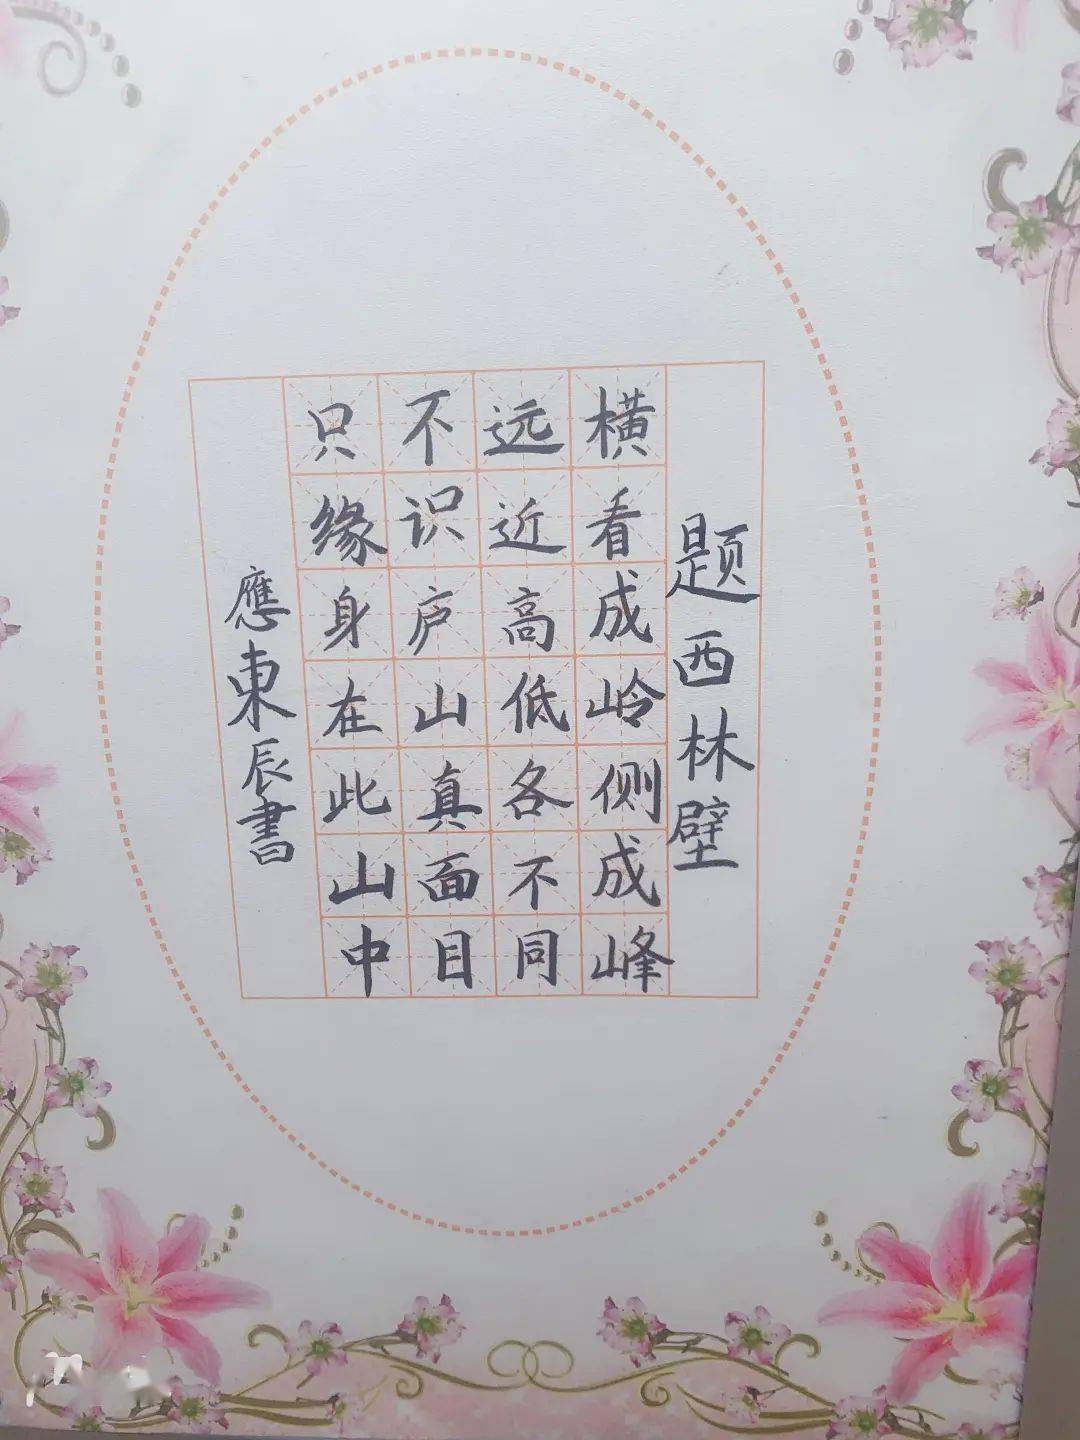 题西林壁
横看成岭侧成峰
远近高低各不同
不识庐山真面目
只缘身在此山中
應東辰書